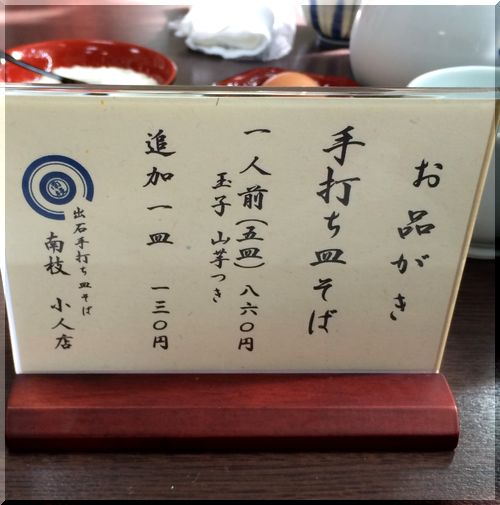 お品がき
手打ち皿そば
一人前(五皿)八六〇円
玉子 山芋つき
追加一皿 一三〇円
出石手打ち皿そば
南枝 小人店